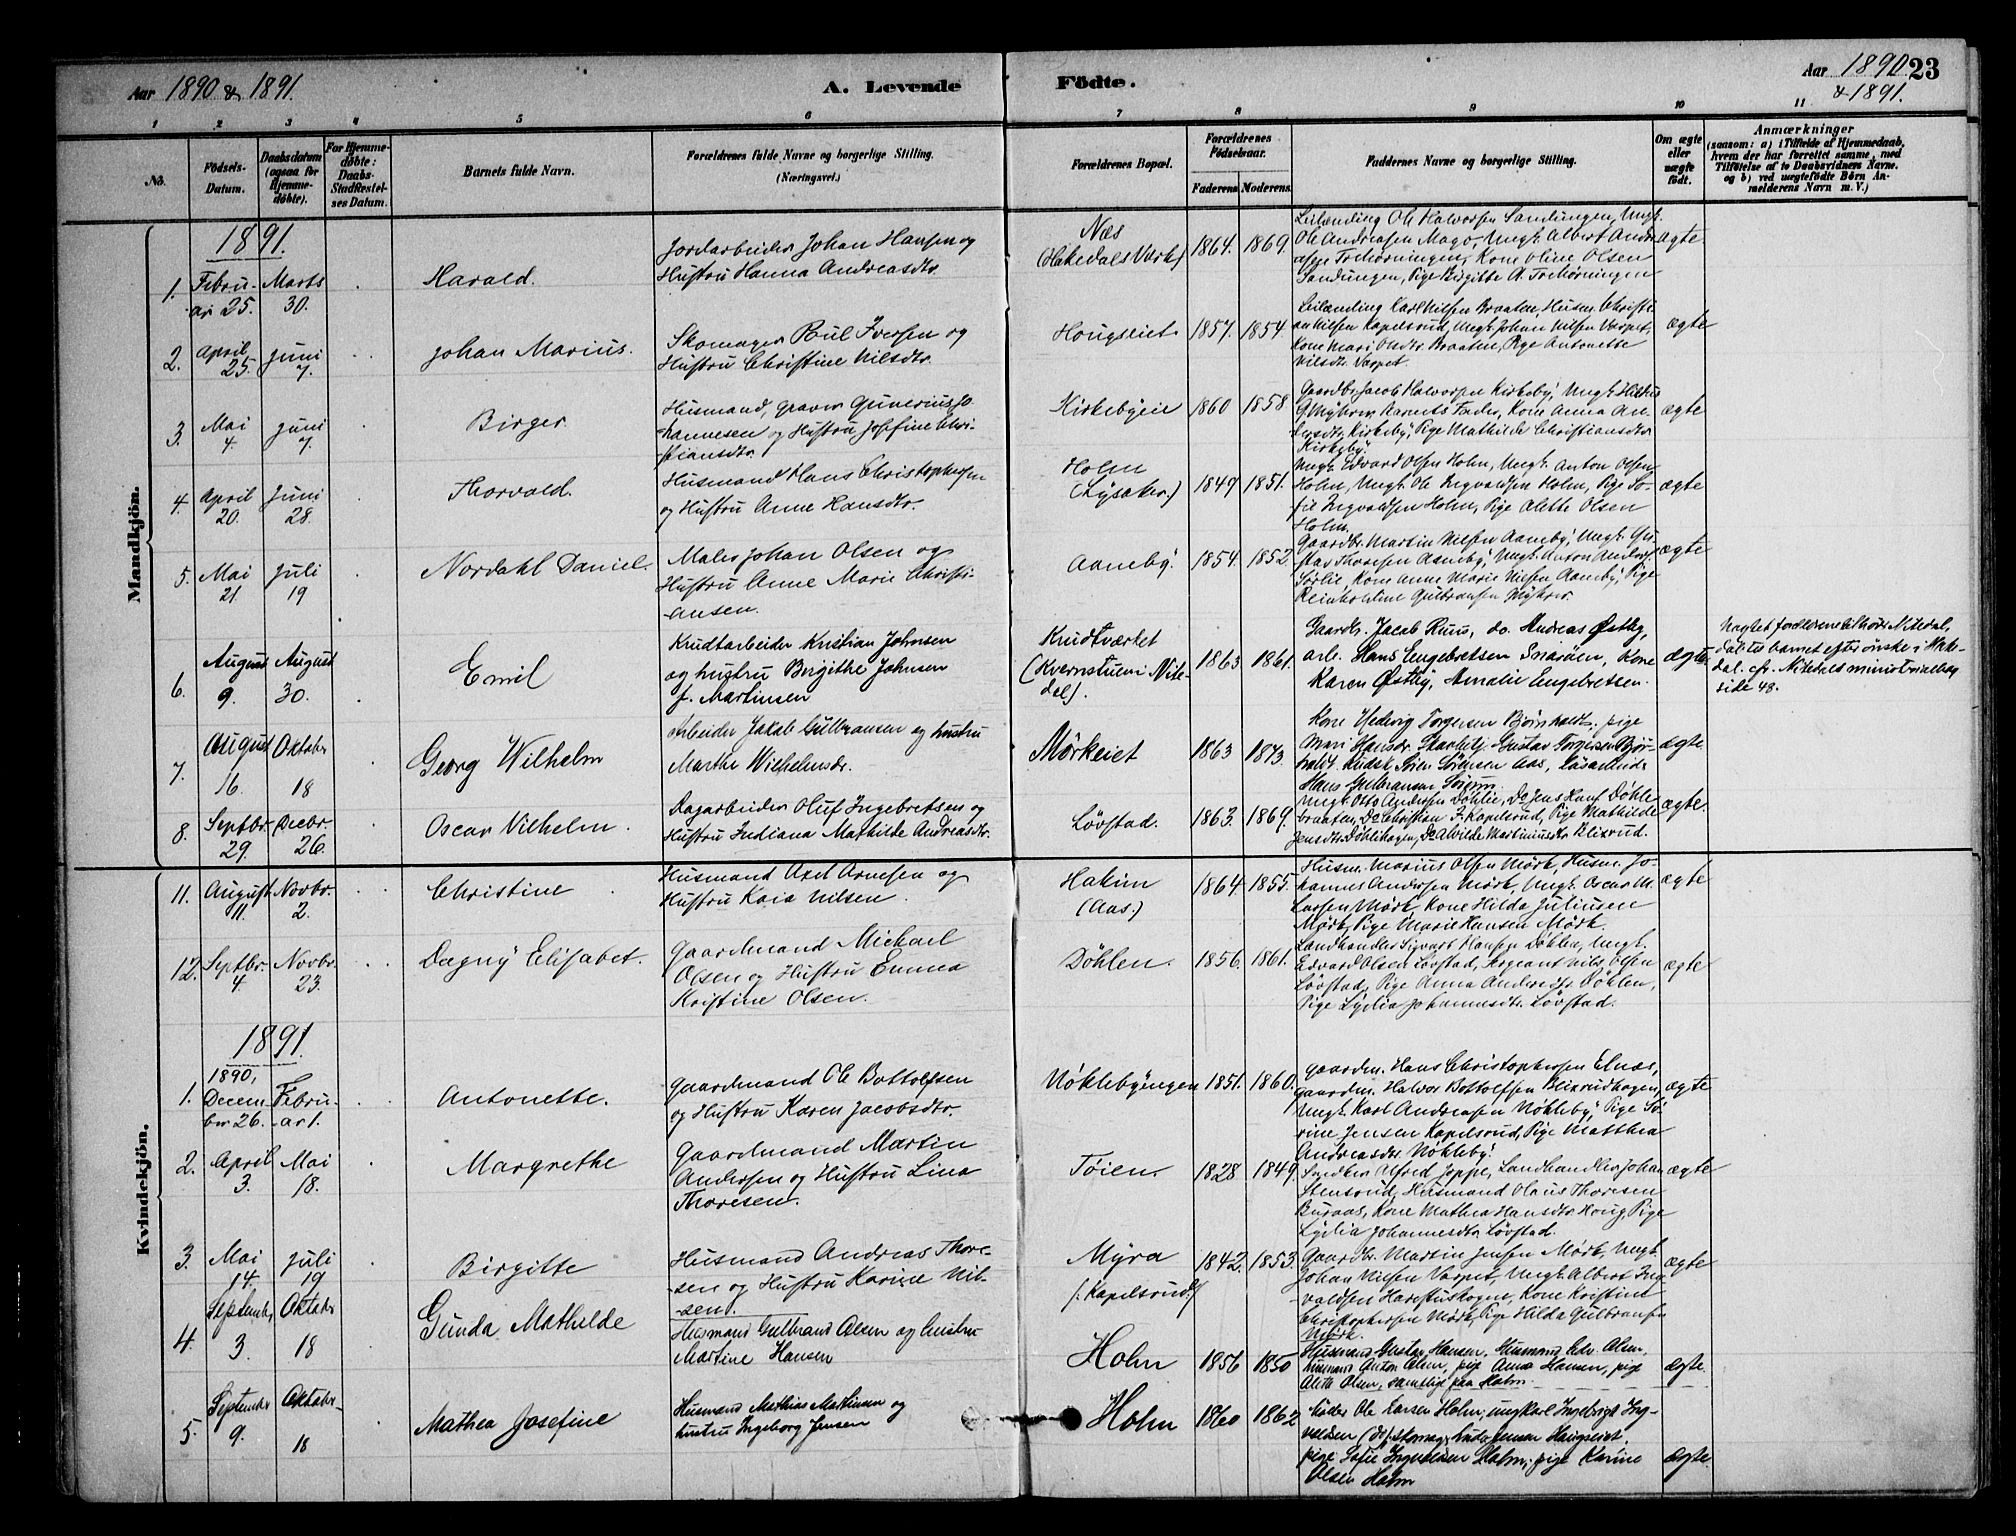 Aar 1890 & 1891.
A. Levende
Födte.
Aar 1890 23
& 1891.
1 2 3 4 5 6 7 8 9 10 11
No.
Födsels-
Datum.
Daabsdatum
(ogsaa for
Hjemme-
döbte).
For Hjemme-
döbte:
Daabs-
Stadfæstel-
ses Datum.
Barnets fulde Navn.
Forældrenes fulde Navne og borgerlige Stilling.
(Næringsvei.)
Forældrenes Bopæl.
Forældrenes
Födselsaar.
Faderens Moderens
Faddernes Navne og borgerlige Stilling.
Om ægte
eller
uægte
födt.
Anmærkninger
(saasom: a) i Tilfælde af Hjemmedaab,
hvem der har forrettet samme, med
Tilföielse af to Daabsvidners Navne.
og b) ved uægtefödte Börn An-
melderens Navn m. V.)
Mandkjön.
1891.
1. Febru-
ar 25.
Marts
30.
Harald.
Jordarbeider Johan Hansen og
Hustru Hanna Andreasdtr.
Næs
(Hakedals Værk)
1864. 1869.
Leilænding Ole Halvorsen Sandungen, Ungk.
Ole Andreasen Mago, Ungk. Albert Andre-
asen Trehörningen, Kone Oline Olsen
Sandungen, Pige Birgitte A. Trehörningen
ægte
2. April
25.
Juni
7.
Johan Marius.
Skomager Poul Iversen og
Hustru Christine Nilsdtr.
Hougseiet
1857. 1854.
Leilænding Karl Nilsen Braaten, Husm. Christi-
an Nilsen Kapelsrud, Ungk. Johan Nilsen Varpet,
Kone Mari Olsdtr. Braaten, Pige Antonette
Nilsdtr. Varpet.
ægte
3. Mai
4.
Juni
7.
Birger.
Husmand, graver Gunerius Jo-
hannesen og Hustru Josefine Chri-
stiansdtr.
Kirkebyeie
1860 1858
Gaardbr. Jacob Halvorsen Kirkeby, Ungk. Hildus
G. Myhrer, Barnets Fader, Kone Anna An-
dersdtr. Kirkeby, Pige Mathilde Christiansdtr.
Kirkeby.
ægte
4. April
20.
Juni
28.
Thorvald.
Husmand Hans Christophersen
og Hustru Anne Hansdtr.
Holm
(Lysaker.)
1849 1851.
Ungk. Edvard Olsen Holm, Ungk. Anton Olsen
Holm, Ungk. Ole Ingvaldsen Holm, Pige So-
fie Ingvaldsen Holm, Pige Alette Olsen
Holm.
ægte
5. Mai
21.
Juli
19
Nordahl Daniel.
Maler Johan Olsen og
Hustru Anne Marie Christi-
ansen.
Aaneby.
1854. 1852.
Gaardbr. Martin Nilsen Aaneby, Ungk. Gu-
stav Thoresen Aaneby, Ungk. Anton Anders.
Sörlie, Kone Anne Marie Nilsen Aaneby, Pige
Reinholdine Gulbransen Myhrer.
ægte
6. August
9.
August
30.
Emil
Krudtarbeider Kristian Johnsen
og hustru Birgithe Johnsen
f. Martinsen
Krudtværket
(Kvernstuen i Nite-
dal).
1863 1861.
Gaardbr. Jacob Ruus, do. Andreas Østby,
arb. Hans Engebretsen Snaröen, Kone
Karen Østby, Amalie Engebretsen.
ægte
Uagtet forældrene tilhöre Nitedal,
döbtes barnet efter ønske i Hake-
dal. cfr. Nitedals ministerialbog
side 48.
7. August
16.
Oktober
18
Georg Wilhelm
Arbeider Jakob Gulbransen og hustru
Marthe Wilhelmsdr.
Mörkeiet
1863 1873.
Kone Hedevig Torgersen Björnholdt, pige
Mari Hansdr. Skarbetj. Gustav Torgersen Bjør-
holdt, Kudsk Sören Sörensen Aas,
Hans Gulbransen
ægte
8. Septbr.
29.
Decbr.
26.
Oscar Vilhelm.
Dagarbeider Oluf Ingebretsen og
Hustru Indiana Mathilde Andreasdtr.
Lövstad.
1863. 1869.
Ungk. Otto Andersen Döhlie, Do Jens Knuts Döhle-
braaten, Do Christian F. Kapelsrud, Pige Mathilde
Jensdtr. Döhlehagen, Do Alvilde Martiniusdtr. Blixrud.
ægte.
Kvindekjön.
11. August
11.
Novbr.
2.
Christine
Husmand Axel Arnesen og
Hustru Kaia Nilsen.
Hakim
(Aas.)
1864 1855.
Husm. Marius Olsen Mörk, Husm. Jo-
hannes Andersen Mörk, Ungk. Oscar M.
Larsen Mörk, Kone Hilda Juliusen
Mörk, Pige Marie Hansen Mörk.
ægte
12. Septbr.
4.
Novbr.
23.
Dagny Elisabet.
Gaardmand Michael
Olsen og Hustru Emma
Kristine Olsen.
Döhlen.
1856. 1861.
Landhandler Sigvart Hansen Döhlen, Ungk.
Edvard Olsen Lövstad, Sergeant Nils Olsen
Lövstad, Pige Anna Andersdtr. Döhlen,
Pige Lydia Johannesdtr. Lövstad.
ægte
1891.
1. 1890,
Decem-
ber 26.
Febru-
ar 1.
Antonette.
Gaardmand Ole Bottolfsen
og Hustru Karen Jacobsdtr.
Nöklebyengen
1851. 1860.
Gaardm. Hans Christophersen Elnæs,
gaardm. Halvor Bottolfsen Blixrudhagen,
Ungk. Karl Andreasen Nökleby, Pige Sö-
rine Jensen Kapelsrud, Pige Matthea
Andreasdtr. Nökleby.
ægte
2. April
3.
Mai
18.
Margrethe
Gaardmand Martin
Andersen og Hustru Lina
Thoresen.
Töien.
1828 1849.
Alfred Joppe, Landhandler Johan
Stensrud, Husmand Olaus Thoresen
Buraas, Kone Mathea Hansdtr. Houg, Pige
Lydia Johannesdtr. Lövstad.
ægte
3. Mai
14.
Juli
19
Birgitte
Husmand Andreas Thore-
sen og Hustru Karine Nil-
sen.
Myra
(Kapelsrud)
1842. 1853.
Gaardbr. Martin Jensen Mörk, Ungk.
Johan Nilsen Varpet, Ungk. Albert Ing-
valdsen Harestuskogen, Kone Kristine
Christophersen Mörk, Pige Hilda Gulbransen
Mörk.
ægte
4. Septemb.
3.
Oktober
18
Gunda Mathilde
Husmand Gulbrand Olsen og hustru
Martine Hansen
Holm
1856 1850
Husmand Gustav Hansen, Husmand Edv. Olsen,
husmand Anton Olsen, pige Anna Hansen, pige
Alette Olsen, samtlige paa Holm.
ægte.
5. September
9.
Oktober
18
Mathea Josefine
Husmand Mathias Martinsen og
hustru Ingeborg Jensen
Holm
1860 1862
Ole Larsen Holm, ungkarl Ingebrigt Ing-
valdsen (do), skomag. Ludv. Jensen Haugseiet,
pige Sofie Ingvaldsen Holm, pige Karine
Olsen Holm
ægte.